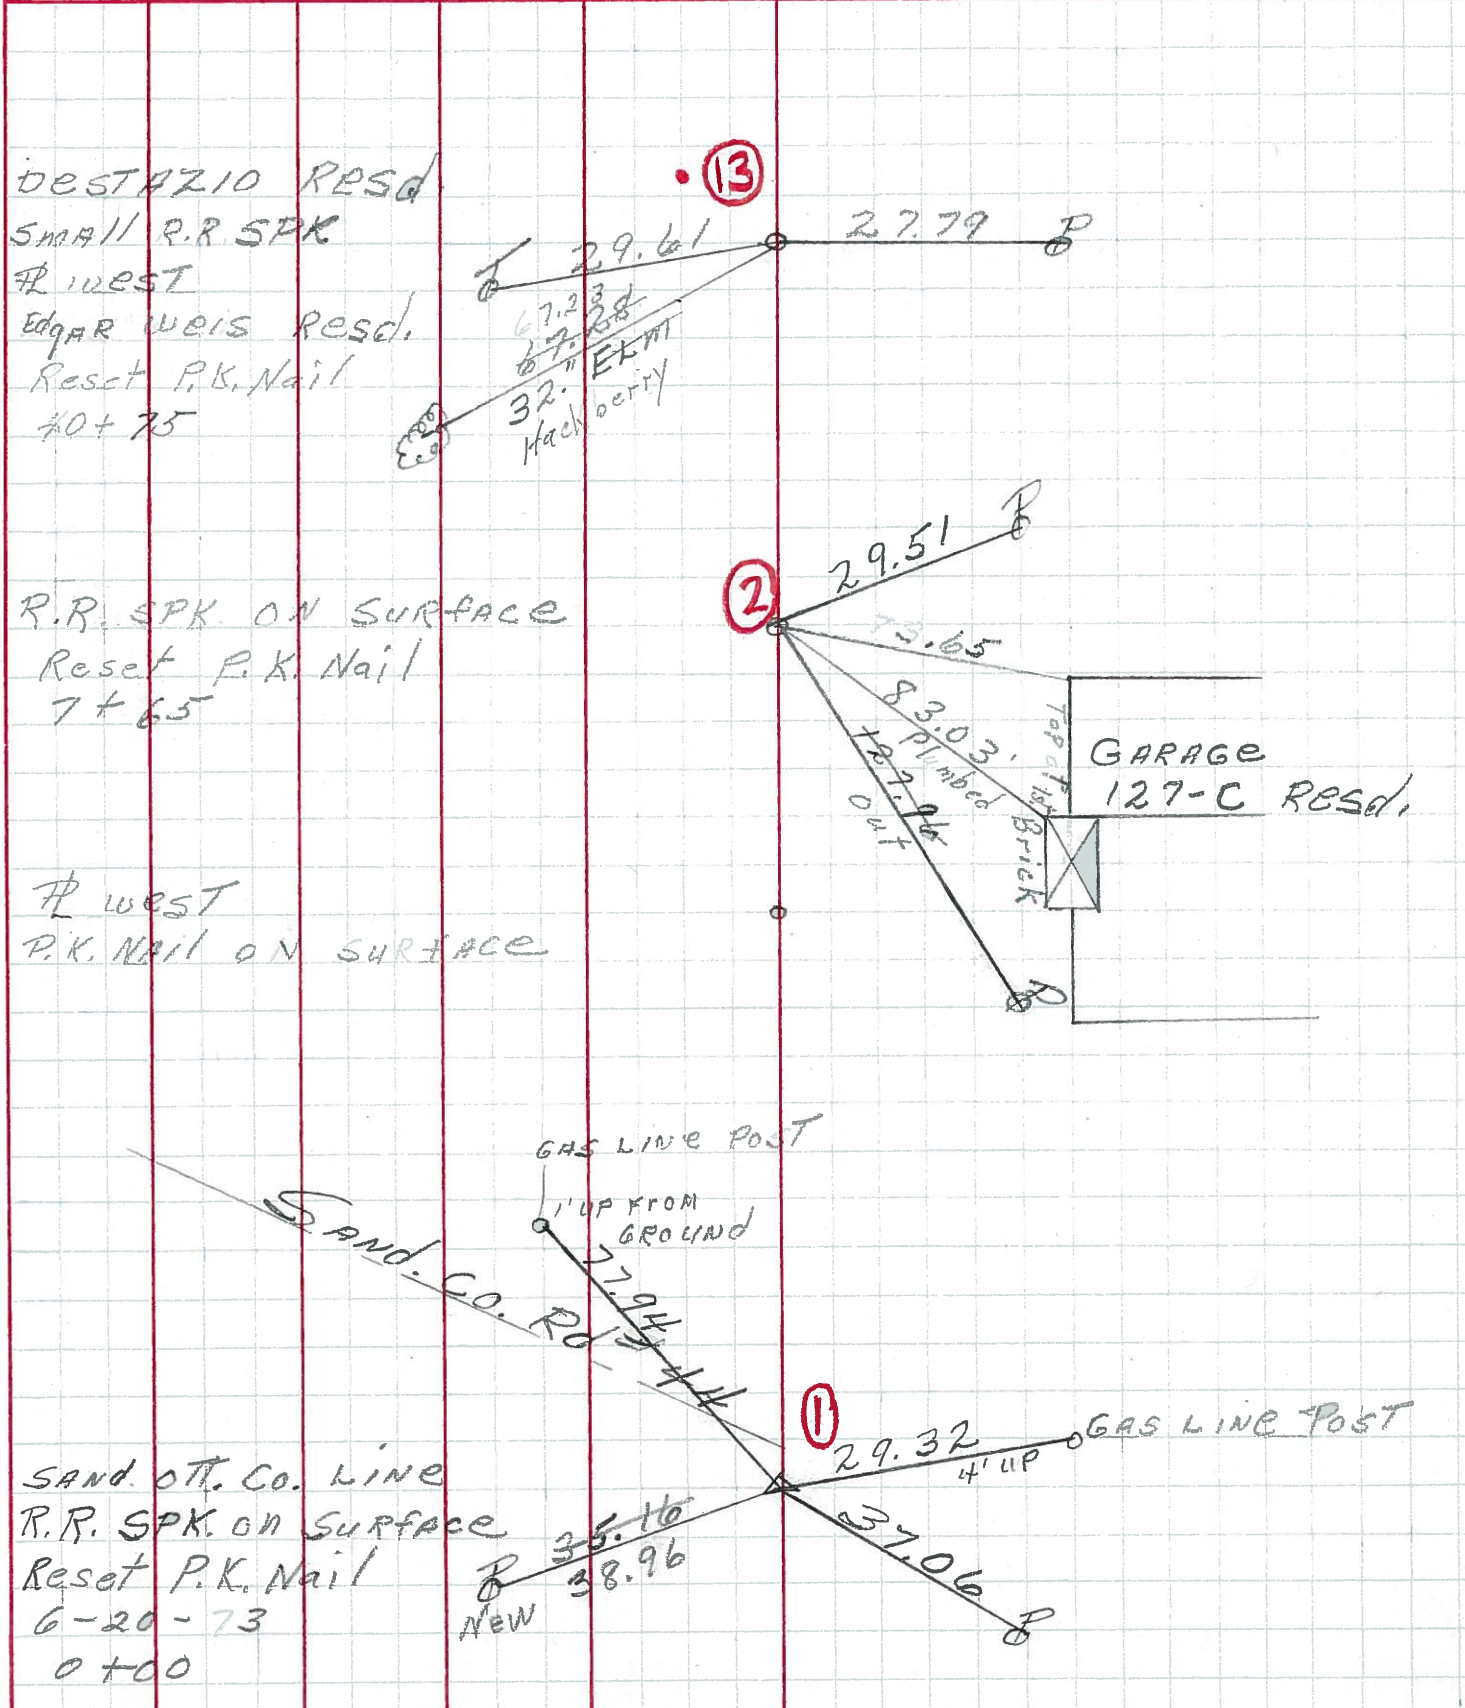 DESTAZIO Resd
SMAll R.R SPK
PL west
EdgAR Weis Resd.
Reset P.K. Nail
40+75
13
29.61
27.79
P
67.23
67.28
32." ELM
Hackberry
R.R. SPK ON SURfACe
Reset P.K. Nail
7+65
2
29.51
P
73.65
83.03'
Plumbed
127.96
out
Brick
GARAGe
127-C Resd.
PL west
P.K. NAil ON SURfACe
P
GAS LINe POST
1' UP FROM
GROUNd
SAND. CO. Rd
77.94
44
1
29.32
4' UP
GAS LINe POST
SAND. OTT. Co. LiNe
R.R. SPK. on SuRfAce
Reset P.K. Nail
6-20-73
0+00
35.16
38.96
P
NEW
37.06
P